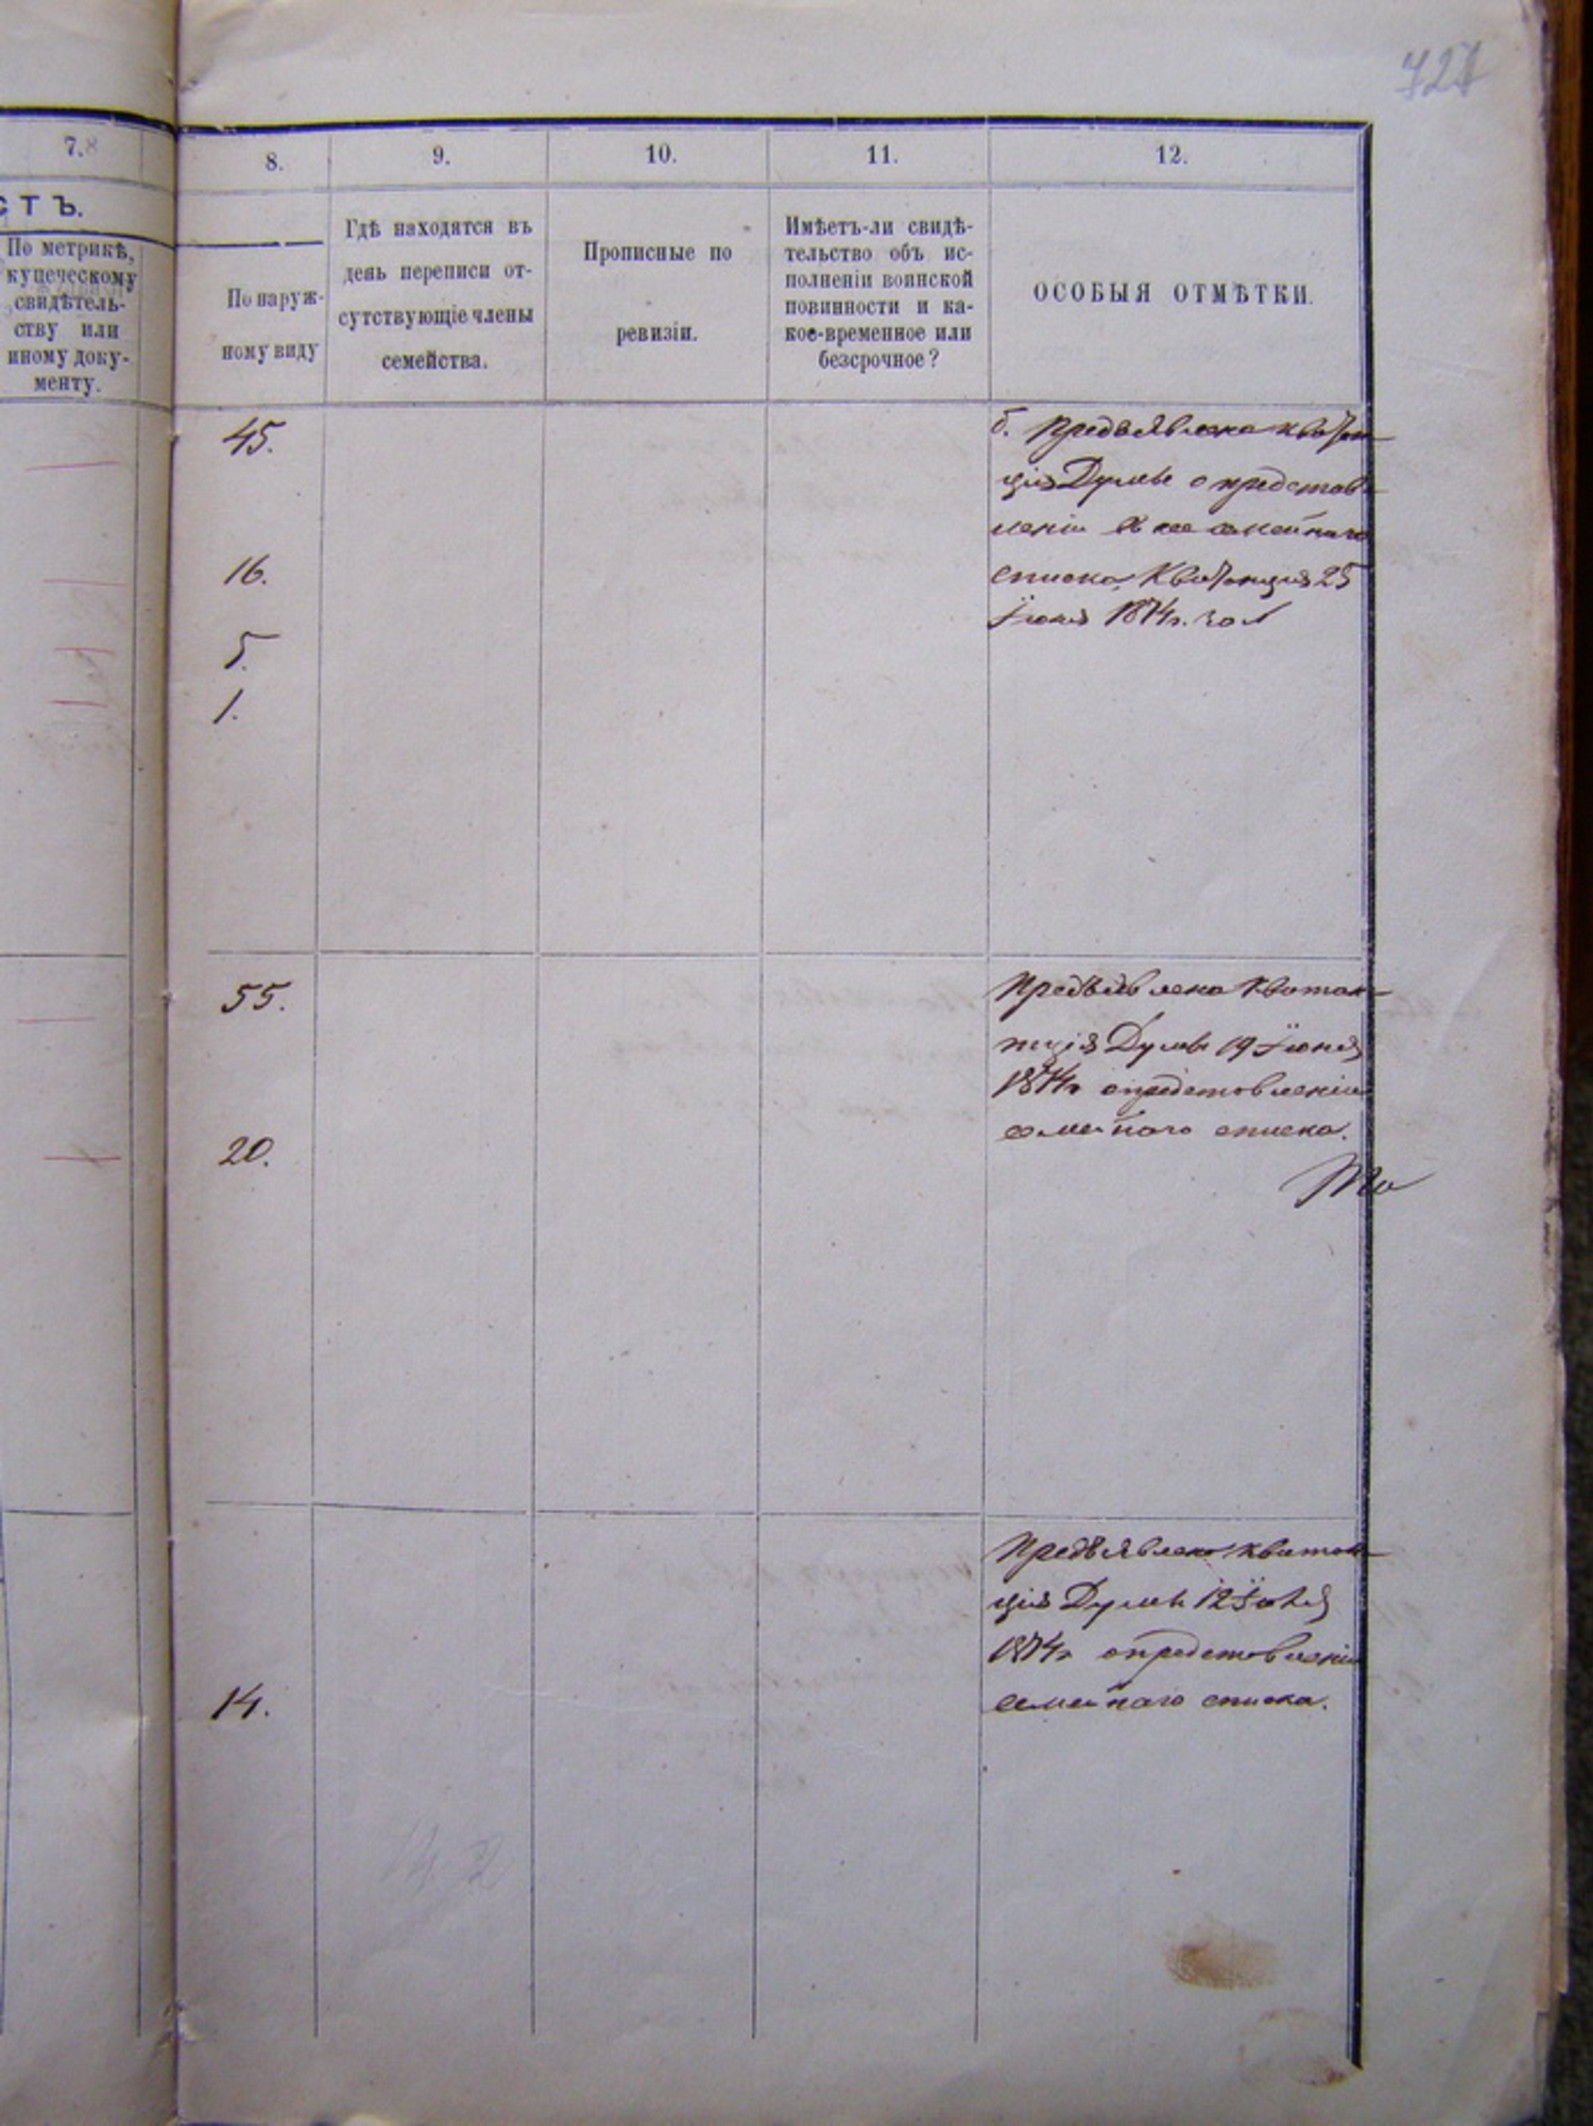 727
7.
8.
9.
10.
11.
12.
СТЪ.
По метрикѣ,
купеческому
свидѣтель-
ству или
иному доку-
менту.
По наруж-
ному виду
Гдѣ находятся въ
день переписи от-
сутствующіе члены
семейства.
Прописные по
ревизіи.
Имѣетъ-ли свидѣ-
тельство объ ис-
полненіи воинской
повинности и ка-
кое-временное или
безсрочное?
ОСОБЫЯ ОТМѢТКИ.
45.
16.
5.
1.
б. Предъявлена квитан-
ція Думы о представ-
леніи въ нее семейнаго
списка, Квитанція 25
Іюня 1874г. за №
55.
20.
Предъявлена Квитан-
нція Думы 19 Іюня
1874г о представленіи
семейнаго списка.
14.
Предъявлена квитан-
ція Думы 12 Іюля
1874г о представленіи
семейнаго списка.